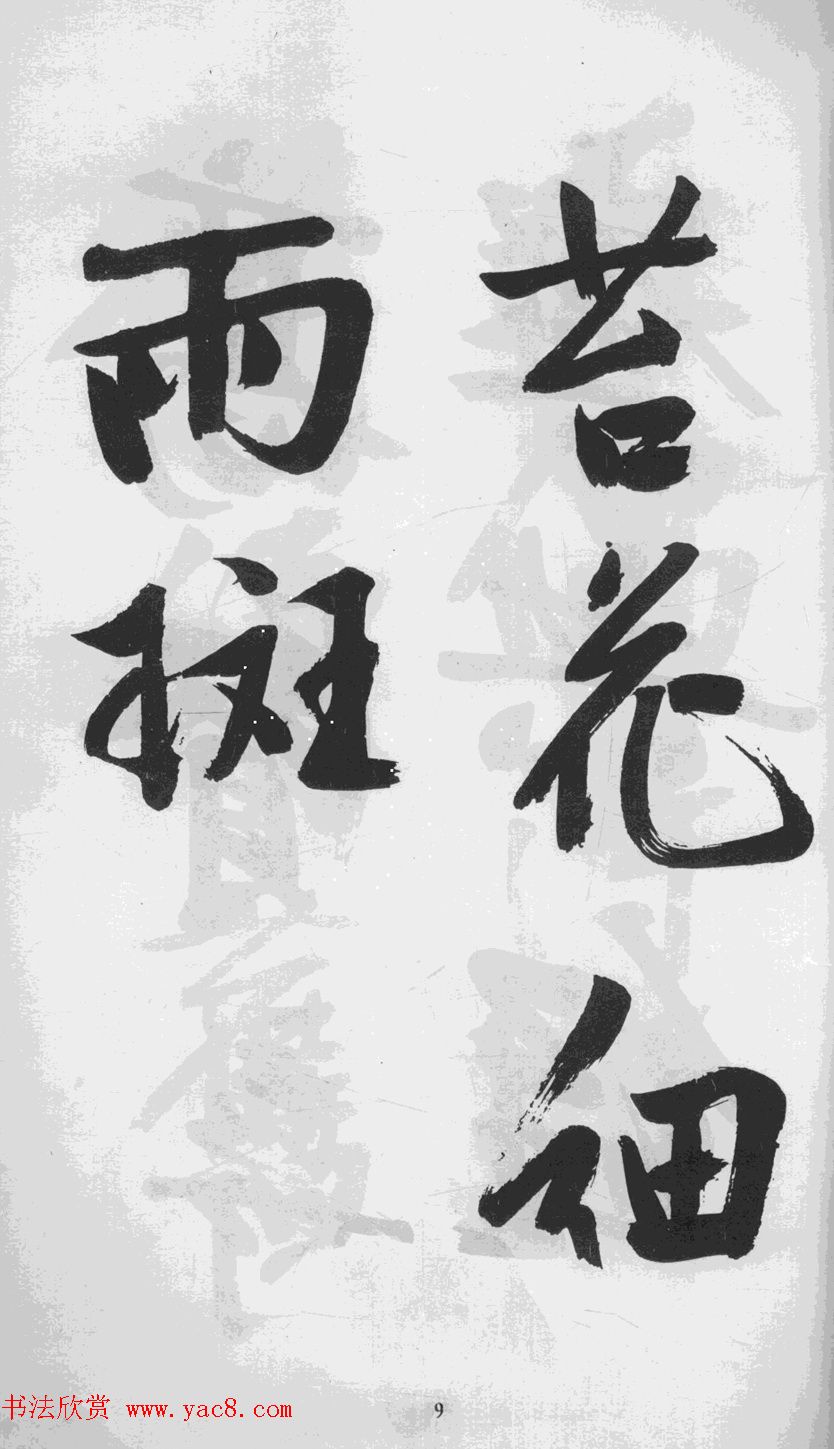 苔花細
雨斑
书法欣赏 www.yac8.com
9